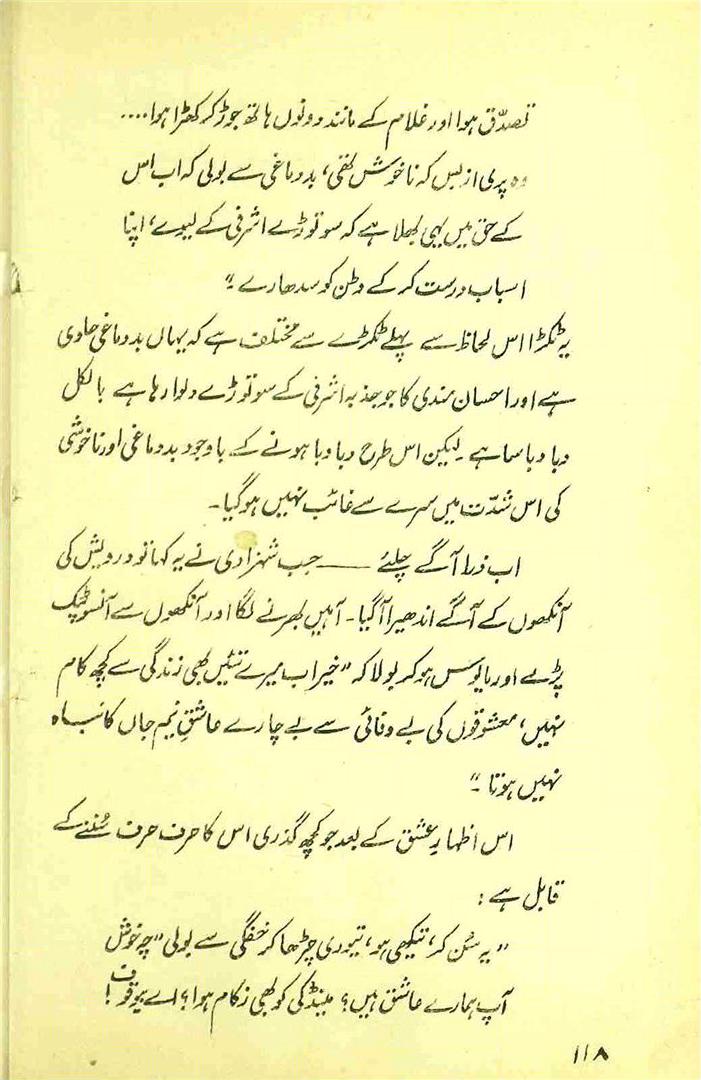 تصدّق ہوا اور غلام کے مانند دونوں ہاتھ جوڑ کر کھڑا ہوا....
وہ پری از بس کہ ناخوش تھی، بد دماغی سے بولی کہ اب اس
کے حق میں یہی بھلا ہے کہ سو توڑے اشرفی کے لیوے، اپنا
اسباب درست کر کے وطن کو سدھارے۔"
یہ ٹکڑا اس لحاظ سے پہلے ٹکڑے سے مختلف ہے کہ یہاں بد دماغی حاوی
ہے اور احسان مندی کا جو جذبہ اشرفی کے سو توڑے دلوا رہا ہے بالکل
دبا دبا سا ہے۔ لیکن اس طرح دبا دبا ہونے کے باوجود بد دماغی اور ناخوشی
کی اس شدّت میں سرے سے غائب نہیں ہو گیا۔
اب ذرا آگے چلئے ـــــ جب شہزادی نے یہ کہا تو درویش کی
آنکھوں کے آگے اندھیرا آگیا۔ آہیں بھرنے لگا اور آنکھوں سے آنسو ٹپک
پڑے اور مایوس ہو کر بولا کہ "خیر اب میرے تئیں بھی زندگی سے کچھ کام
نہیں، معشوقوں کی بے وفائی سے بے چارے عاشقِ نیم جاں کا نباہ
نہیں ہوتا۔"
اس اظہارِ عشق کے بعد جو کچھ گذری اس کا حرف حرف سُننے کے
قابل ہے:
"یہ سُن کر، تیکھی ہو، تیوری چڑھا کر خفگی سے بولی "چہ خوش
آپ ہمارے عاشق ہیں؟ مینڈکی کو بھی زکام ہوا؟ اے بیوقوف!
۱۱۸